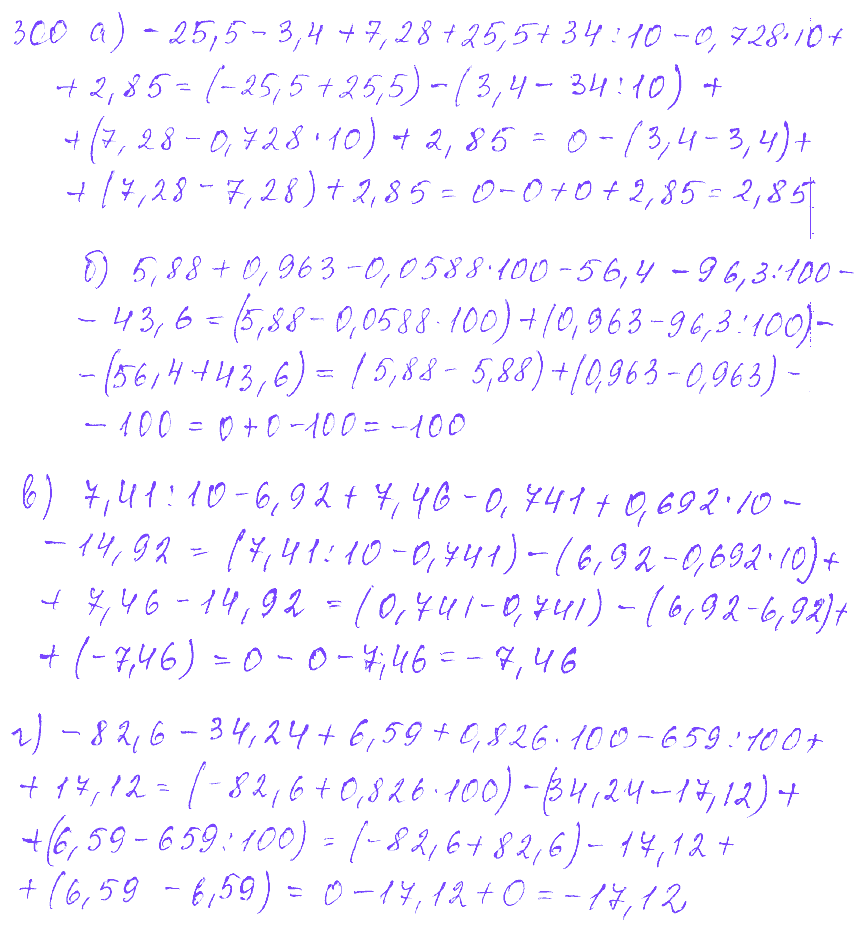 300 а) - 25,5 - 3,4 + 7,28 + 25,5 + 34 : 10 - 0,728·10 +
+ 2,85 = (-25,5 + 25,5) - (3,4 - 34 : 10) +
+ (7,28 - 0,728·10) + 2,85 = 0 - (3,4 - 3,4) +
+ (7,28 - 7,28) + 2,85 = 0 - 0 + 0 + 2,85 = 2,85
б) 5,88 + 0,963 - 0,0588·100 - 56,4 - 96,3:100 -
- 43,6 = (5,88 - 0,0588·100) + (0,963 - 96,3:100) -
- (56,4 + 43,6) = (5,88 - 5,88) + (0,963 - 0,963) -
- 100 = 0 + 0 - 100 = -100
в) 7,41:10 - 6,92 + 7,46 - 0,741 + 0,692·10 -
- 14,92 = (7,41:10 - 0,741) - (6,92 - 0,692·10) +
+ 7,46 - 14,92 = (0,741 - 0,741) - (6,92 - 6,92) +
+ (-7,46) = 0 - 0 - 7,46 = - 7,46
г) - 82,6 - 34,24 + 6,59 + 0,826·100 - 659:100 +
+ 17,12 = (-82,6 + 0,826·100) - (34,24 - 17,12) +
+ (6,59 - 659:100) = (-82,6 + 82,6) - 17,12 +
+ (6,59 - 6,59) = 0 - 17,12 + 0 = -17,12